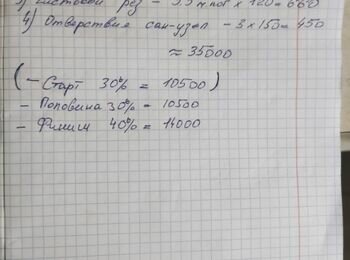 3) Чистовой рез - 5.5 м пог x 120 = 660
4) Отверствия сан-узел - 3 x 150 = 450
≈ 35000
(- Старт 30% = 10500)
- Половина 30% = 10500
- Финиш 40% = 14000